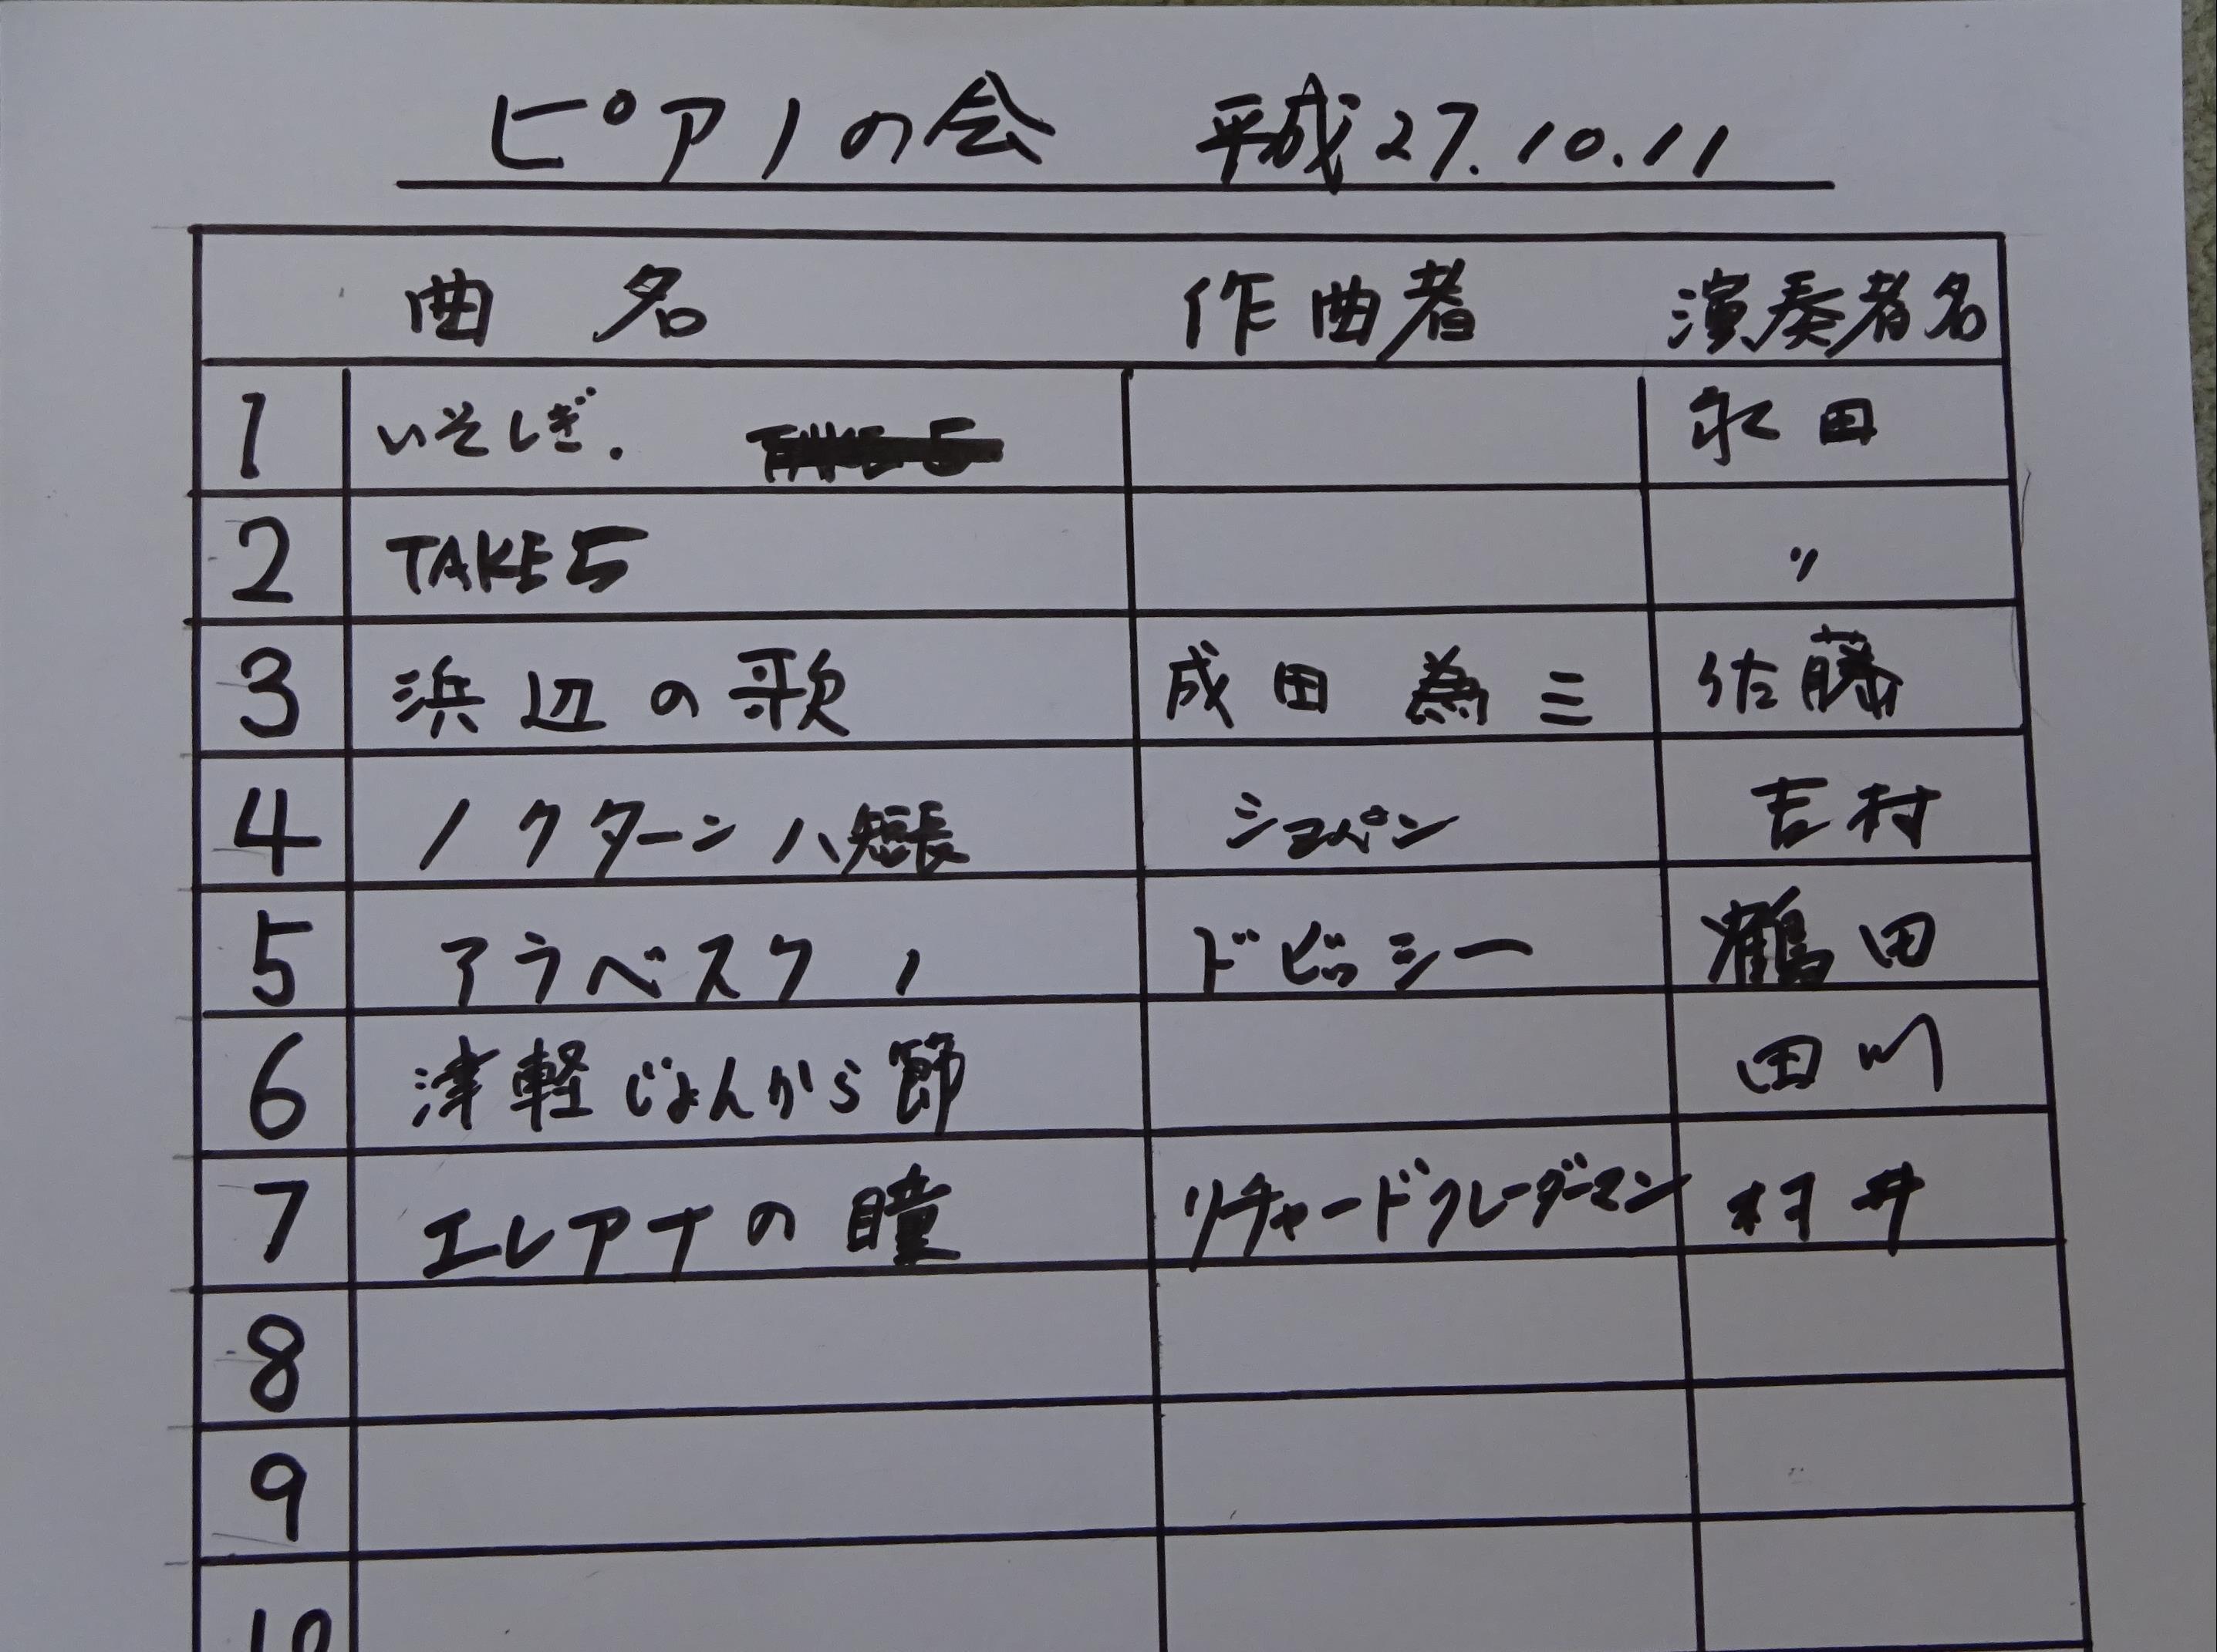 ピアノの会 平成27.10.11
曲名 作曲者 演奏者名
1 いそしぎ. 永田
2 TAKE5 〃
3 浜辺の歌 成田為三 佐藤
4 ノクターンハ短長 ショパン 吉村
5 アラベスク1 ドビッシー 鶴田
6 津軽じょんから節 田川
7 エレアナの瞳 リチャードクレーダーマン 村井
8
9
10